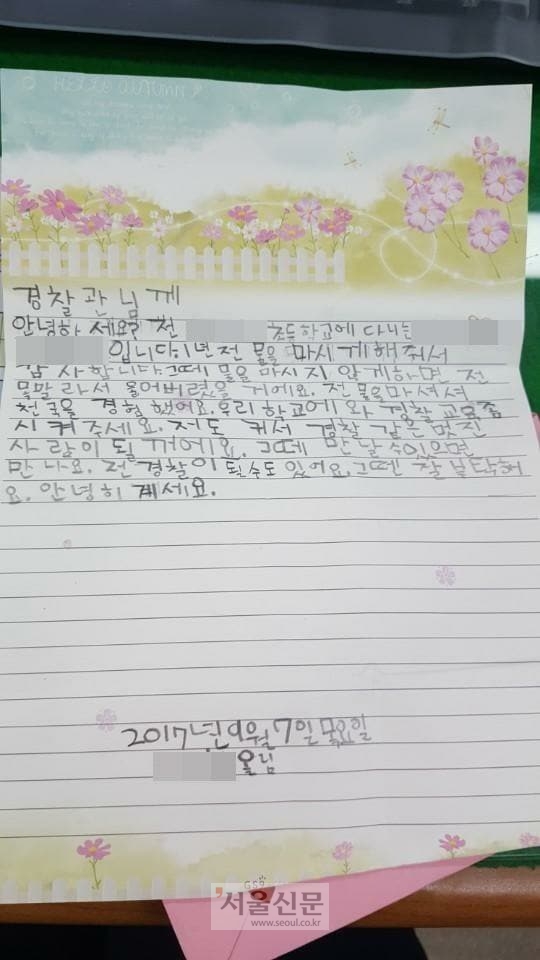 경찰관님께
안녕하세요? 전 초등학교에 다니는
입니다. 1년 전 물을 마시게해줘서
감사합니다. 그떼 물을 마시지 않게하면 전
목말라서 울어버렸을 거에요. 전 물을마셔셔
천국을 경험했어요. 우리 학교에 와 경찰 교육좀
시켜주세요. 저도 커서 경찰 같은 멋진
사람이 될 꺼에요. 그떼 만날 수있으면
만나요. 전 경찰이 될수도 있어요. 그뗀 잘 부탁해
요. 안녕히 계세요.
2017년 9월 7일 목요일
올림
서울신문
www.seoul.co.kr